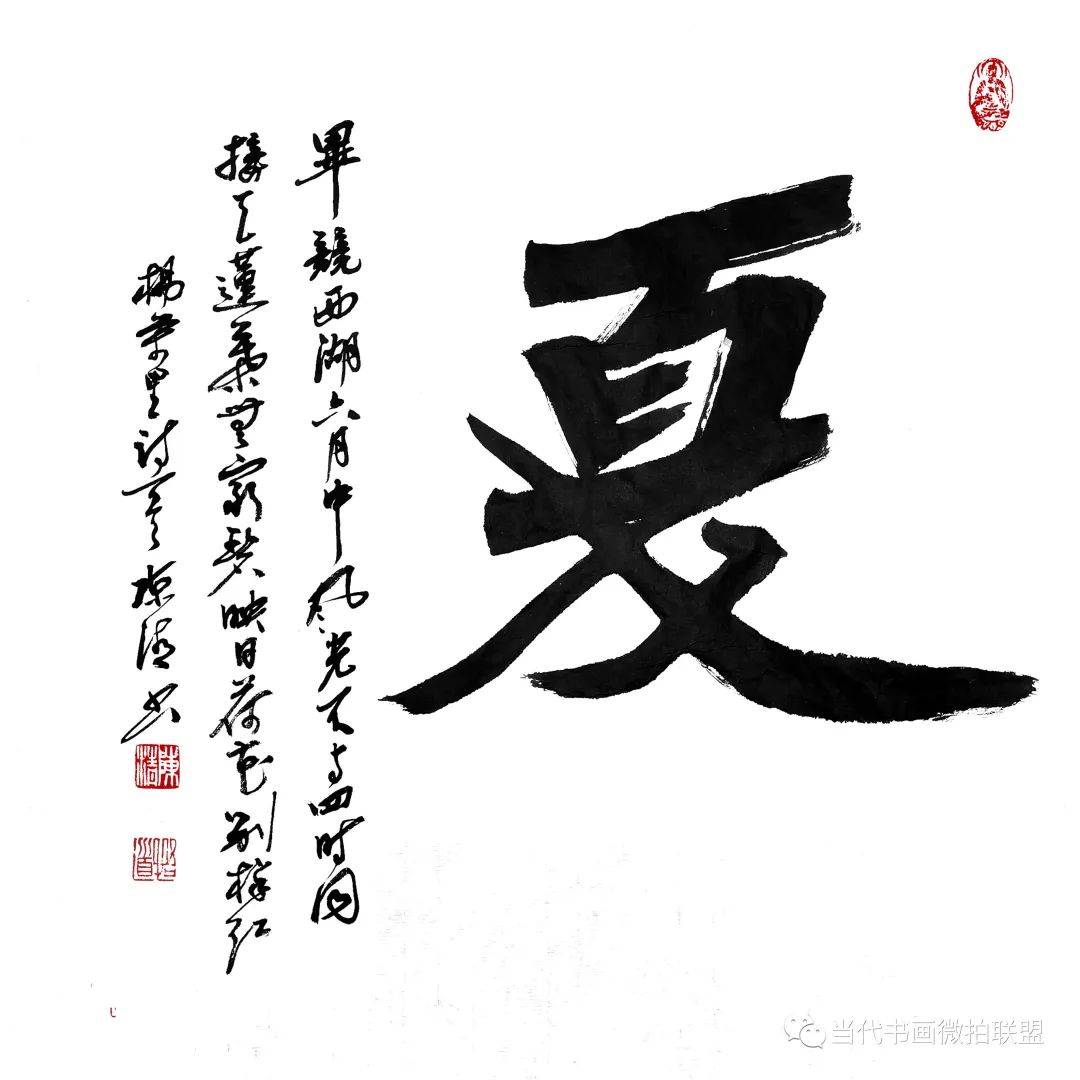 夏
畢競西湖六月中風光不与四时同
接天蓮葉無窮碧映日荷花別樣紅
楊萬里詩意陳书
当代书画微拍联盟